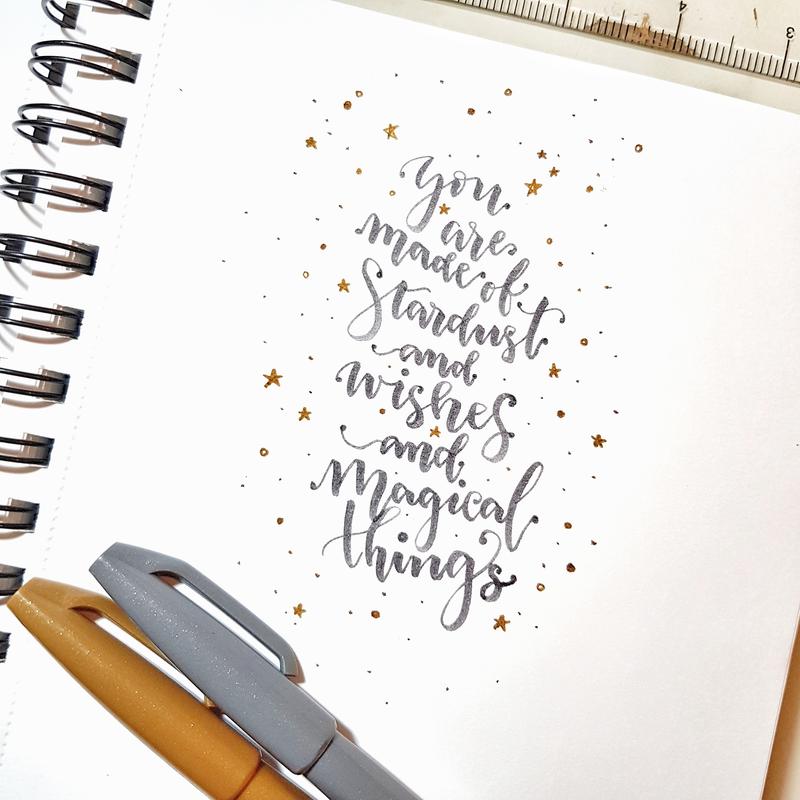 4
3
you
are
made of
Stardust
and
wishes
and
Magical
things